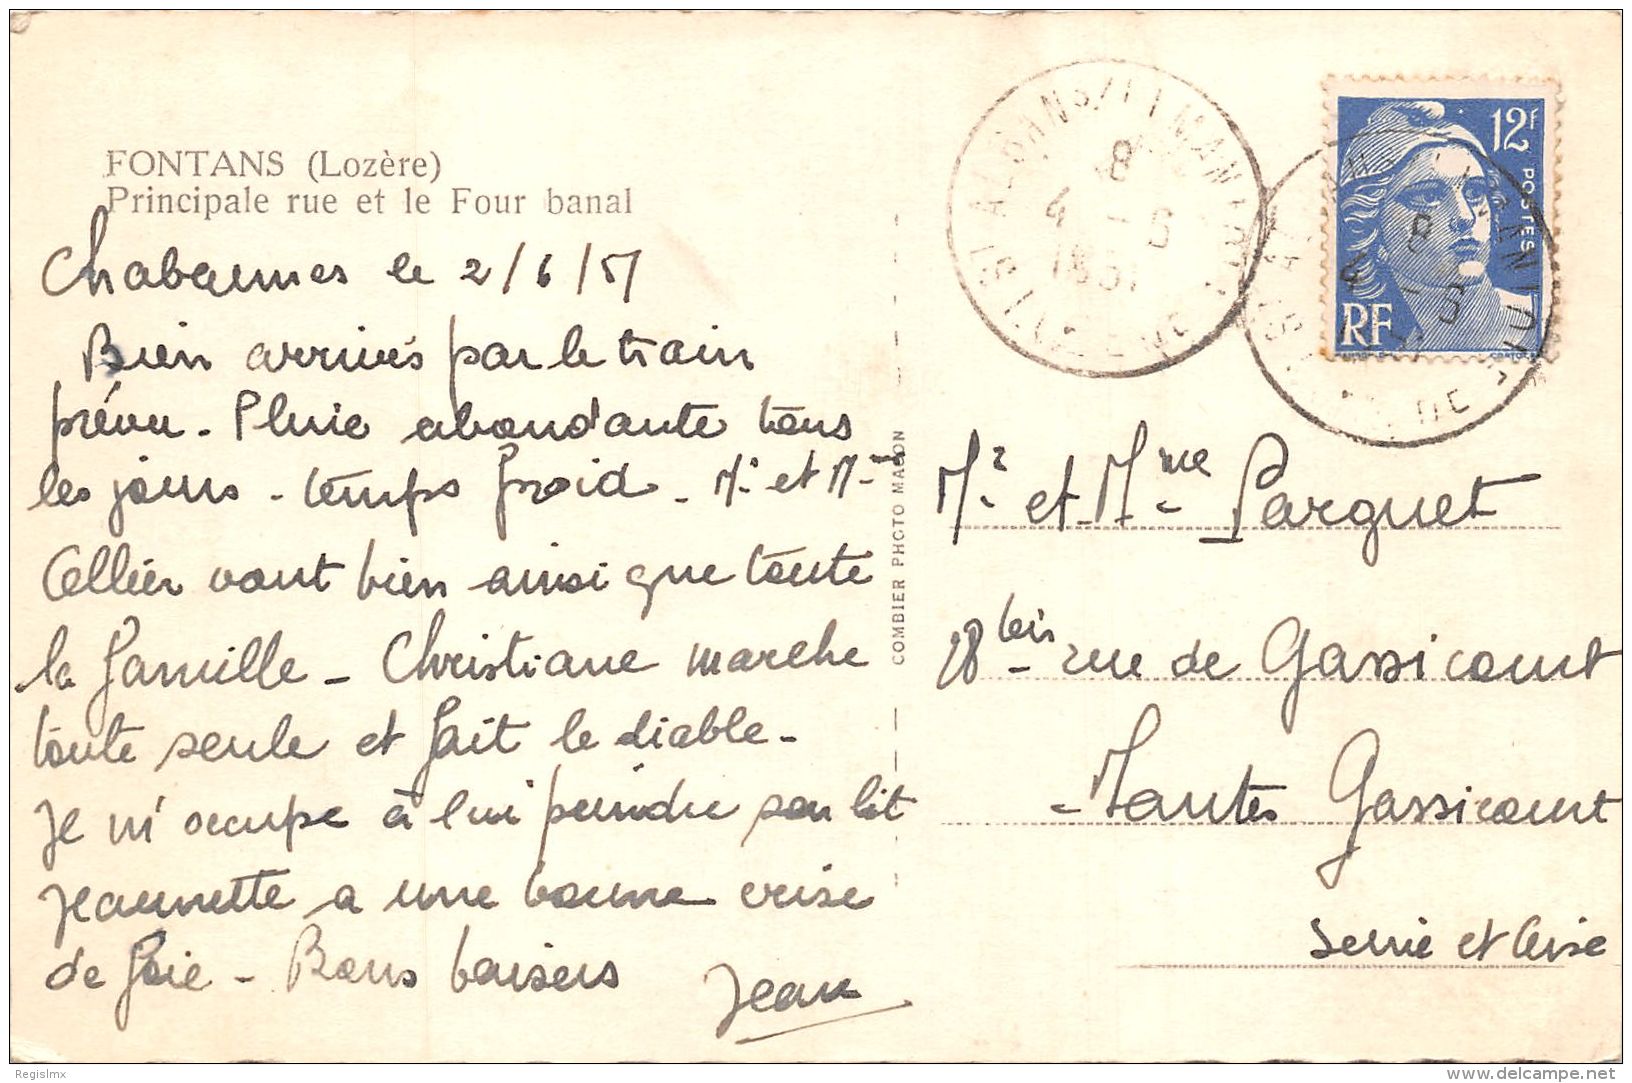 FONTANS (Lozère)
Principale rue et le Four banal
Chabannes le 2/6/51
Bien arrivés par le train
prévu. Pluie abondante tous
les jours - temps froid - Mr et Mme
Cellier vont bien ainsi que toute
la famille - Christiane marche
toute seule et fait le diable -
Je m'occupe à lui peindre son lit
Jeannette a une bonne crise
de foie - Bons baisers
Jean
COMBIER PHOTO MACON
8
4 - 6
1951
12F
POSTES
RF
Mr et Mme Parguet
28 bis rue de Gassicourt
- Mantes Gassicourt
Seine et Oise
Regislmx
delcampe.net